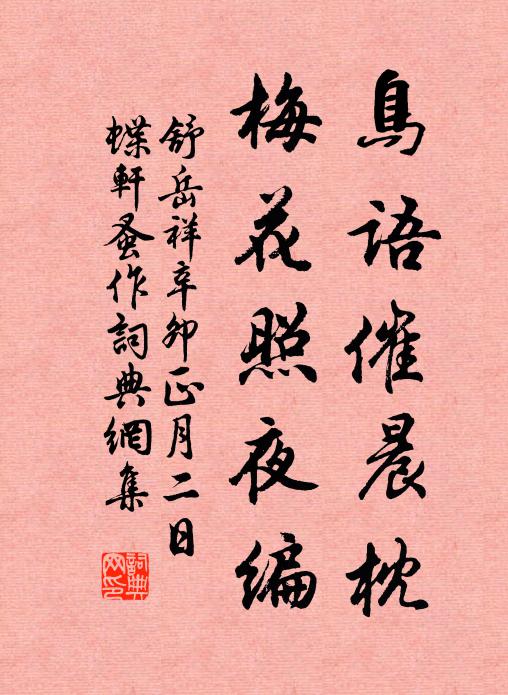 鳥語催晨枕
梅花照夜編
舒岳祥辛卯正月二日
蝶軒蚤作詞典網集
詞典網印